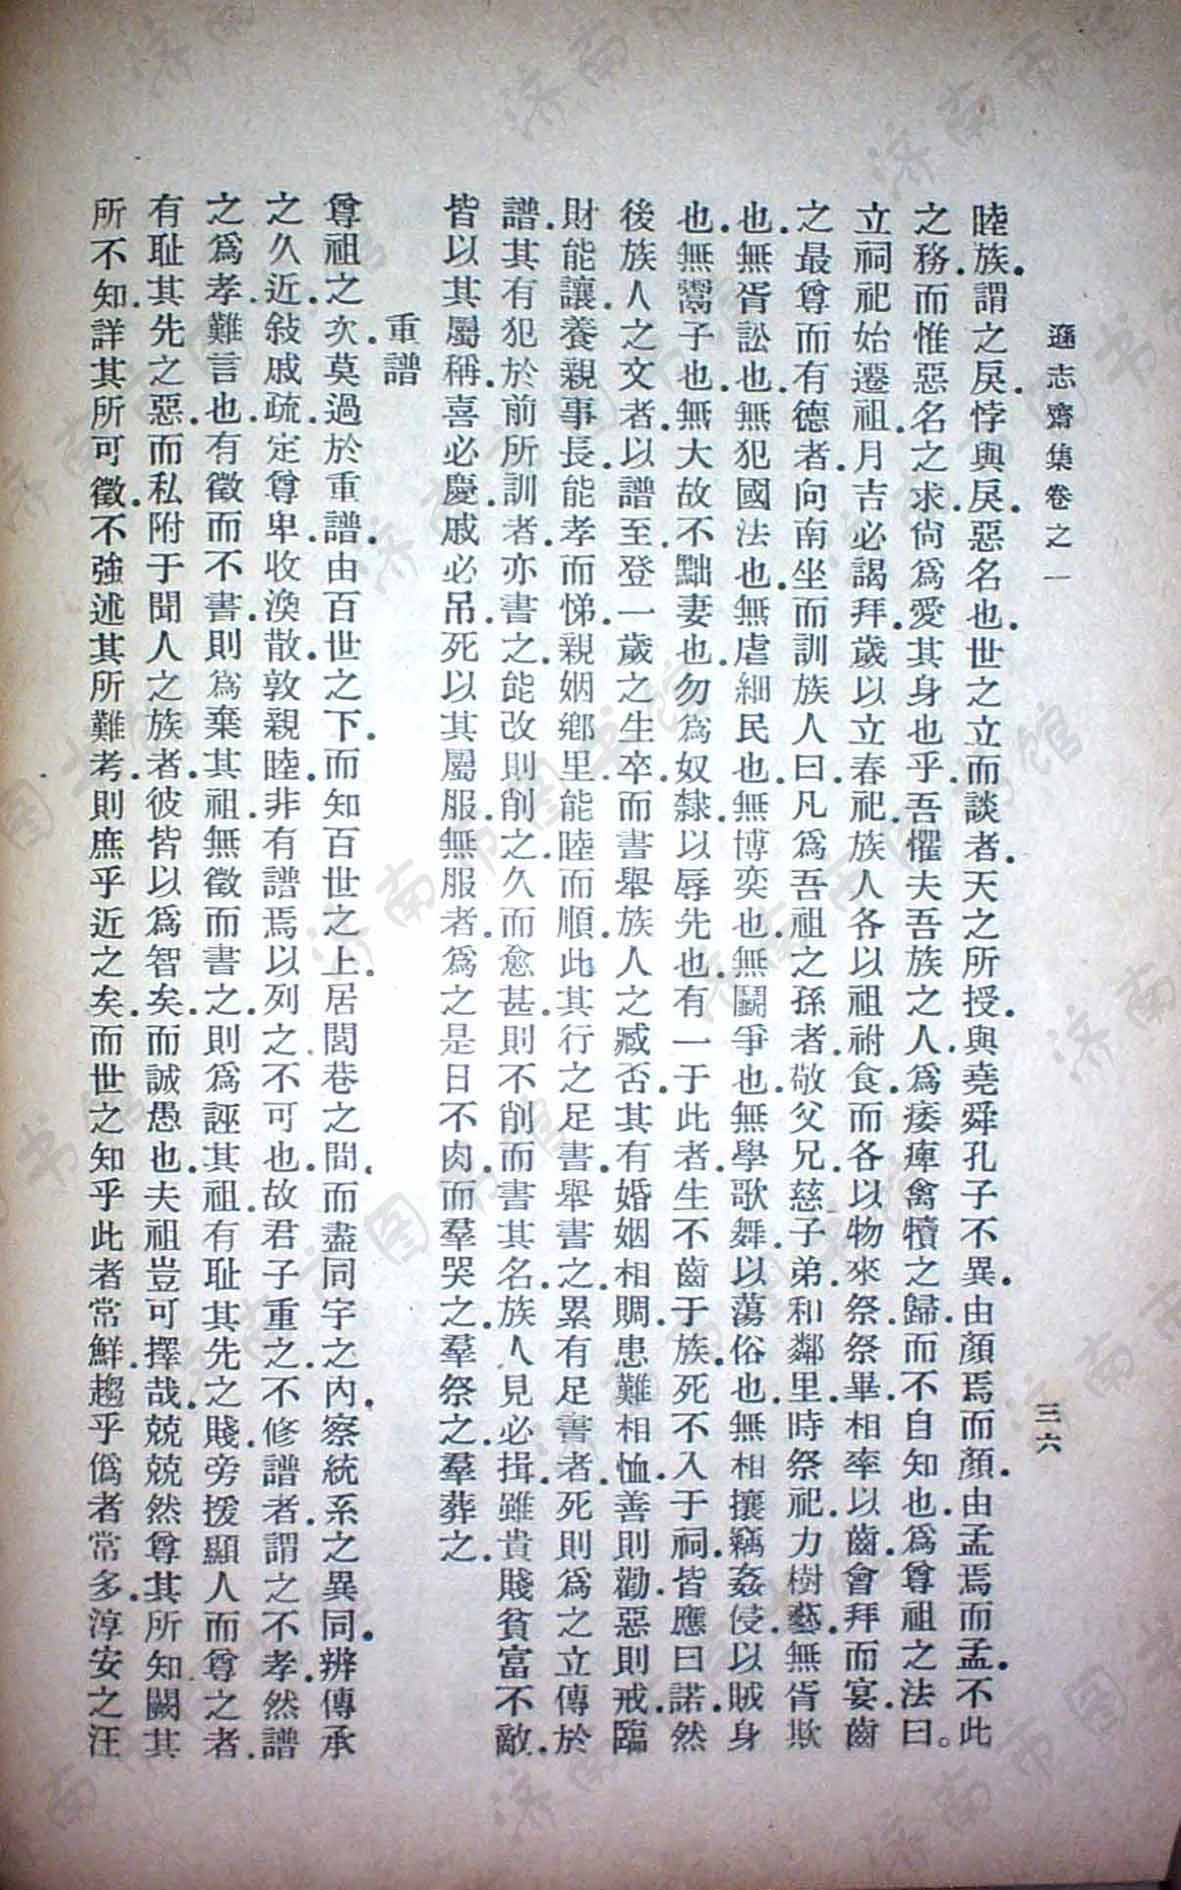 遜志齋集卷之一
三六
睦族.謂之戾.悖與戾.惡名也.世之立而談者.天之所授.與堯舜孔子不異.由顏焉而顏.由孟焉而孟.不此
之務.而惟惡名之求.尙爲愛其身也乎.吾懼夫吾族之人.爲痿痺禽犢之歸.而不自知也.爲尊祖之法曰。
立祠祀始遷祖.月吉必謁拜.歲以立春祀.族人各以祖祔食.而各以物來祭.祭畢.相率以齒.會拜而宴.齒
之最尊而有德者.向南坐.而訓族人曰.凡爲吾祖之孫者.敬父兄.慈子弟.和鄰里.時祭祀.力樹藝.無胥欺
也.無胥訟也.無犯國法也.無虐細民也.無博奕也.無鬭爭也.無學歌舞.以蕩俗也.無相攘竊姦侵.以賊身
也.無鬻子也.無大故不黜妻也.勿爲奴隸.以辱先也.有一于此者.生不齒于族.死不入于祠.皆應曰諾.然
後族人之文者.以譜至.登一歲之生卒.而書舉族人之臧否.其有婚姻相賙.患難相恤.善則勸.惡則戒.臨
財能讓.養親事長.能孝而悌.親姻鄉里.能睦而順.此其行之足書.舉書之.累有足書者.死則爲之立傳於
譜.其有犯於前所訓者.亦書之.能改則削之.久而愈甚.則不削而書其名.族人見必揖.雖貴賤貧富不敵.
皆以其屬稱.喜必慶.戚必吊.死以其屬服.無服者.爲之是日不肉.而羣哭之.羣祭之.羣葬之.
重譜
尊祖之次.莫過於重譜.由百世之下.而知百世之上.居閭巷之間.而盡同宇之內.察統系之異同.辨傳承
之久近.敍戚疏.定尊卑.收渙散.敦親睦.非有譜焉以列之.不可也.故君子重之.不修譜者.謂之不孝.然譜
之爲孝.難言也.有徵而不書.則爲棄其祖.無徵而書之.則爲誣其祖.有耻其先之賤.旁援顯人而尊之者.
有耻其先之惡.而私附于聞人之族者.彼皆以爲智矣.而誠愚也.夫祖豈可擇哉.兢兢然尊其所知.闕其
所不知.詳其所可徵.不強述其所難考.則庶乎近之矣.而世之知乎此者常鮮.趨乎僞者常多.淳安之汪